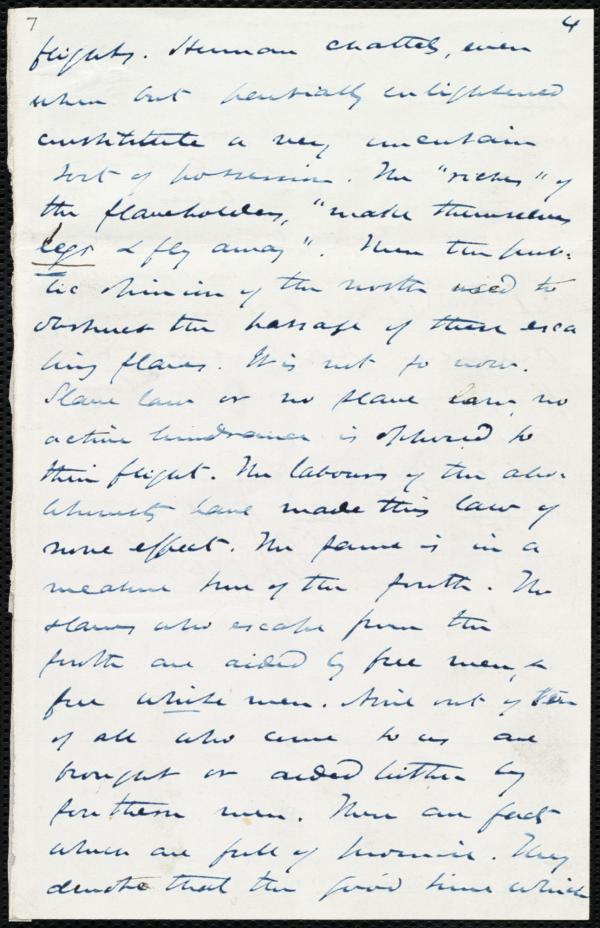 7 4
flights. Human chattels, even
when but partially enlightened
constitute a very uncertain
sort of possession. The "riches" of
the slaveholders, "make themselves
legs & fly away". Then the pub-
lic opinion of the north used to
obstruct the passage of these esca
ping slaves. It is not so now.
Slave law or no slave law, no
active hindrance is offered to
their flight. The labours of the abo-
litionists have made this law of
none effect. The same is in a
measure true of the south. The
slaves who escape from the
south are aided by free men, &
free white men. Nine out of ten
of all who come to us are
brought or aided hither by
southern men. These are facts
which are full of promise. They
denote that the good time which